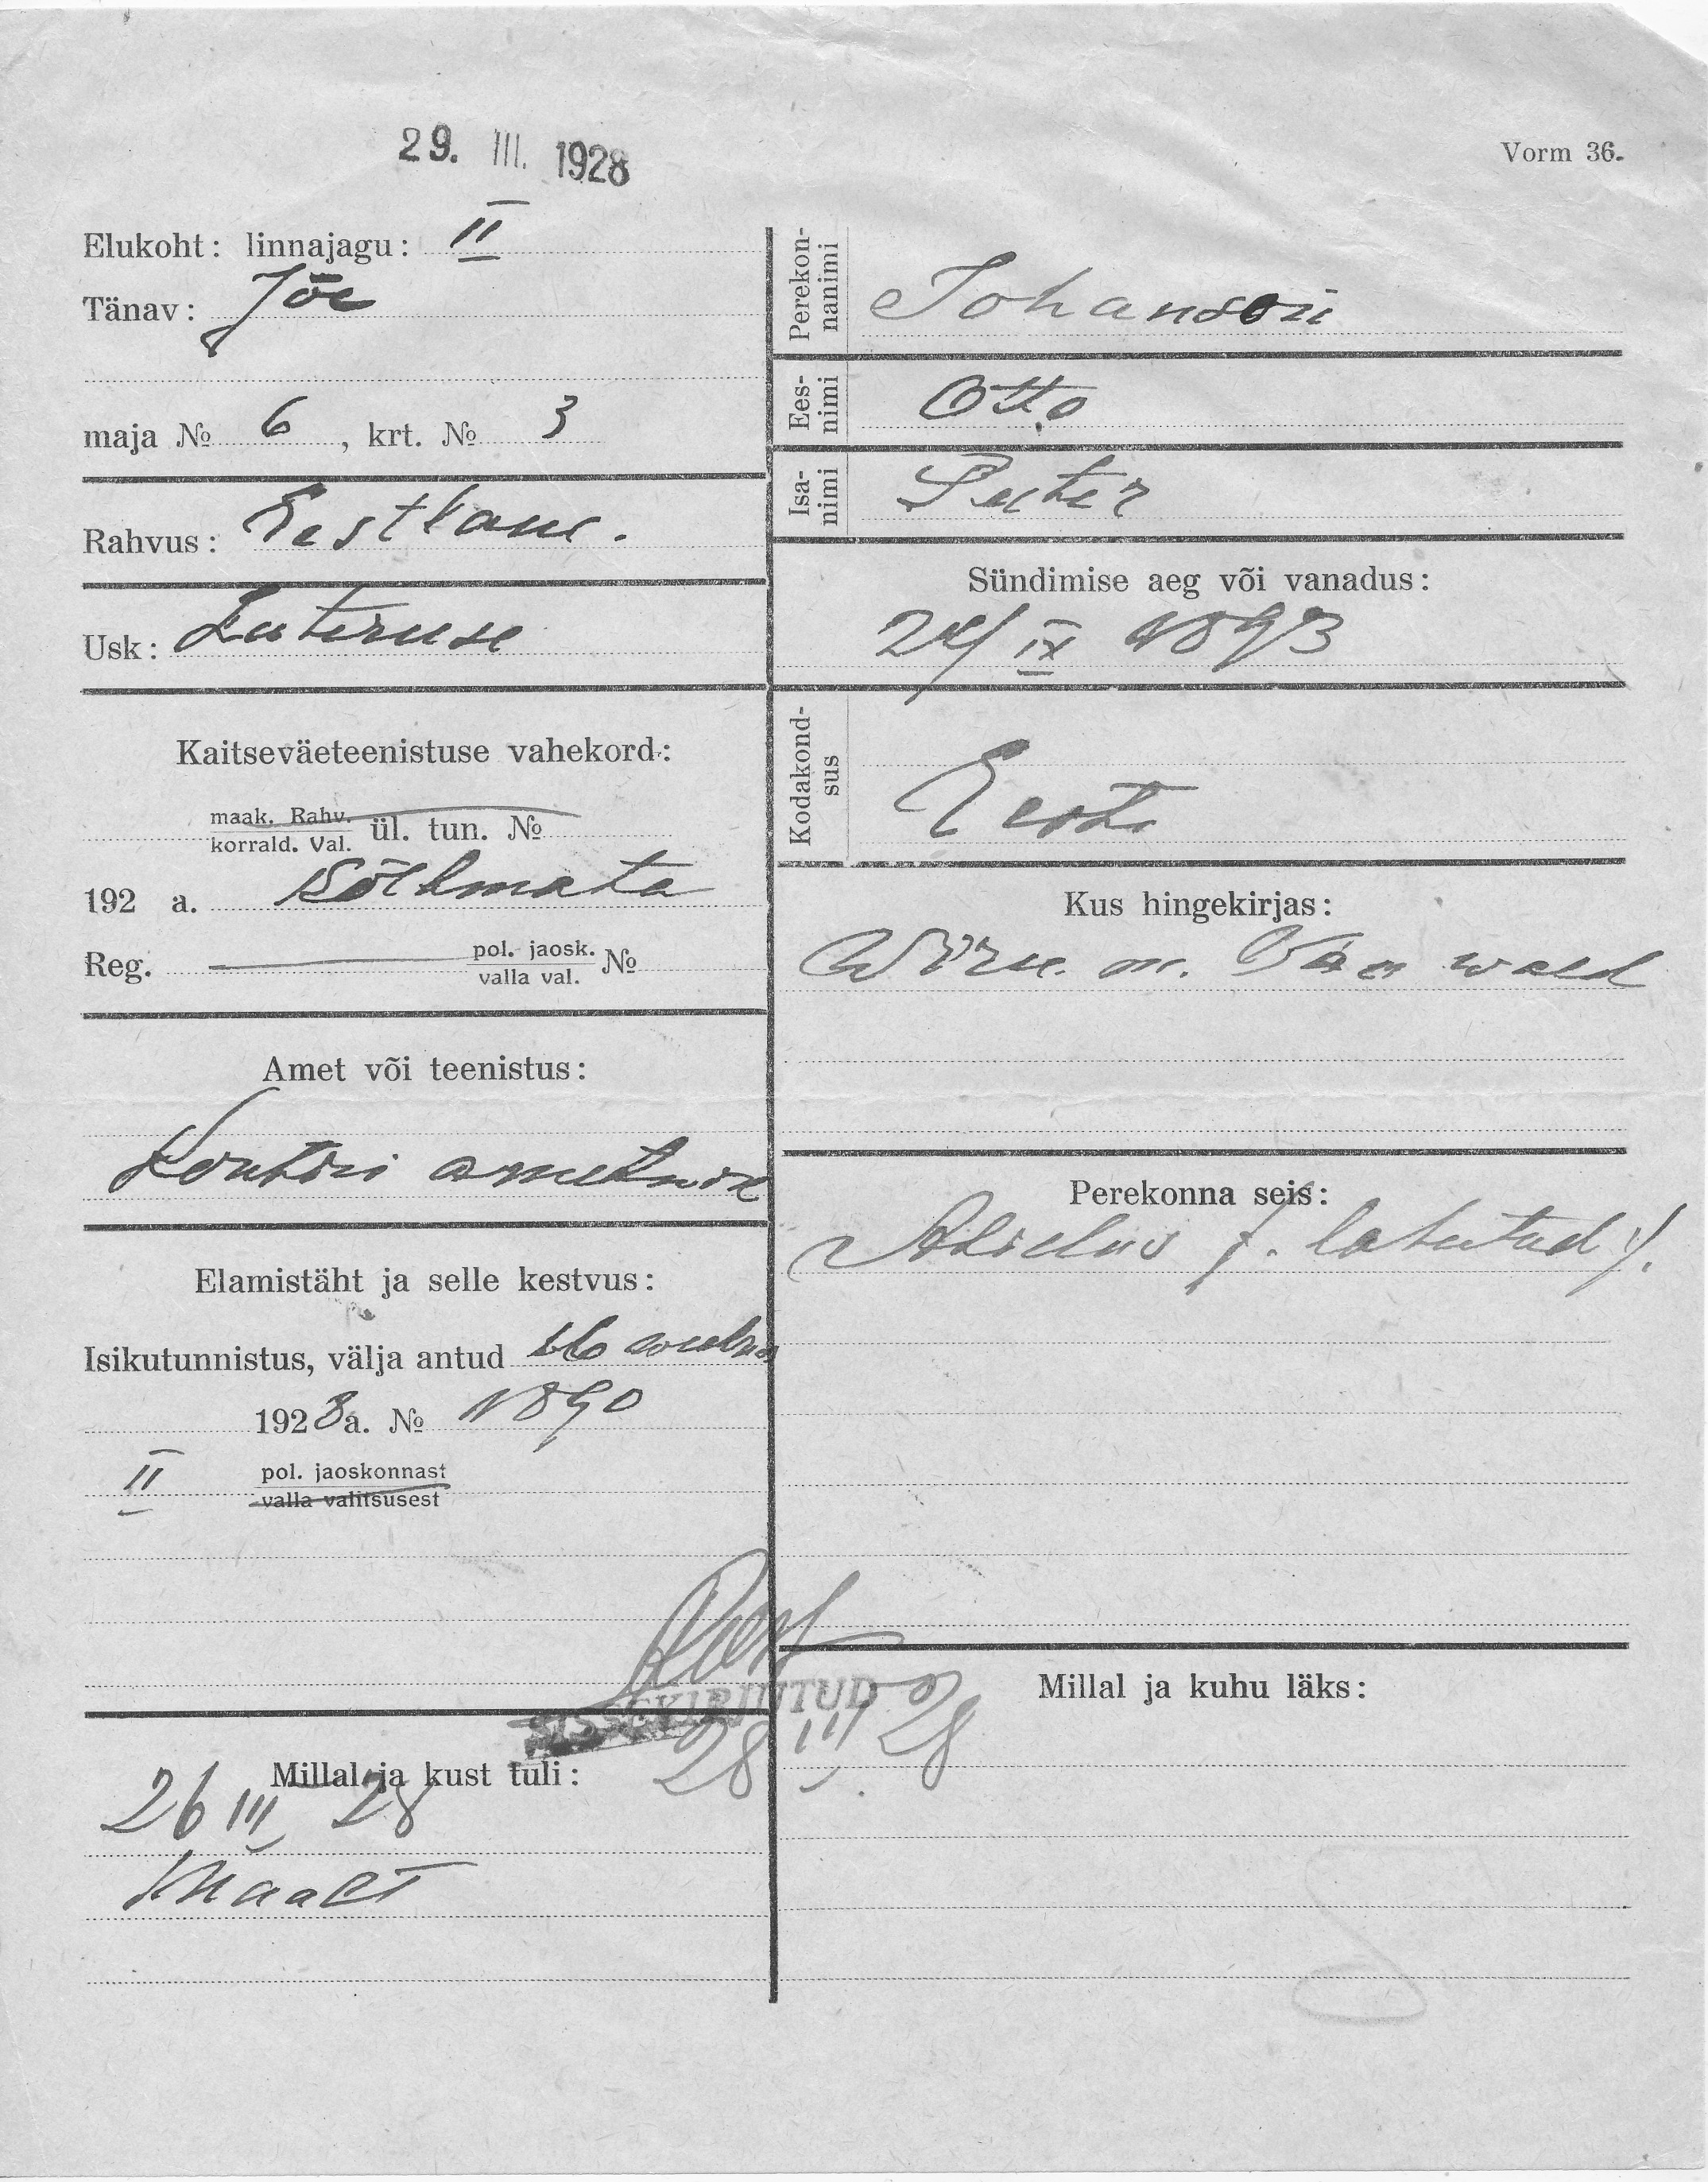 29. III. 1928
Vorm 36.
Elukoht: linnajagu: II
Tänav: Jõe
maja № 6, krt. № 3
Rahvus: Eestlane.
Usk: Luteruse
Kaitseväeteenistuse vahekord:
maak. Rahv.
korrald. Val. ül. tun. №
192 a. Kõlbmata
Reg. pol. jaosk.
valla val. №
Amet või teenistus:
Kontori ametnik
Elamistäht ja selle kestvus:
Isikutunnistus, välja antud 16
1928 a. № 1890
II pol. jaoskonnast
valla valitsusest
SISSEKIRJUTUD
28 III 28
Millal ja kust tuli:
26 III 28
Maalt
Perekonnanimi Johanson
Eesnimi Otto
Isanimi Peeter
Sündimise aeg või vanadus:
24/IX 1893
Kodakondsus Eesti
Kus hingekirjas:
Wiru. m. wald
Perekonna seis:
Abielus /. lahutud /.
Millal ja kuhu läks: